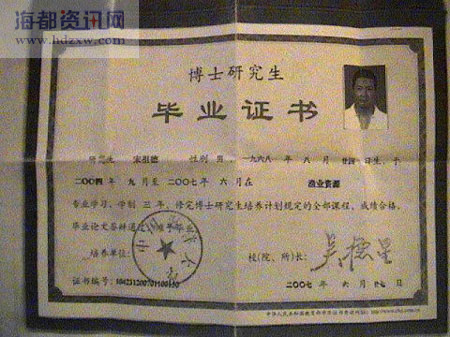 海都资讯网
www.hdzxw.com
博士研究生
毕业证书
研究生 宋祖德 性别 男 一九六八年 八月 日生,于
二〇〇四年 九月至二〇〇七年 六月在 渔业资源
专业学习,学制 三 年,修完博士研究生培养计划规定的全部课程,成绩合格,
毕业论文答辩通过,准予毕业
培养单位:
校(院、所)长:
证书编号:
二〇〇七年 六月 日